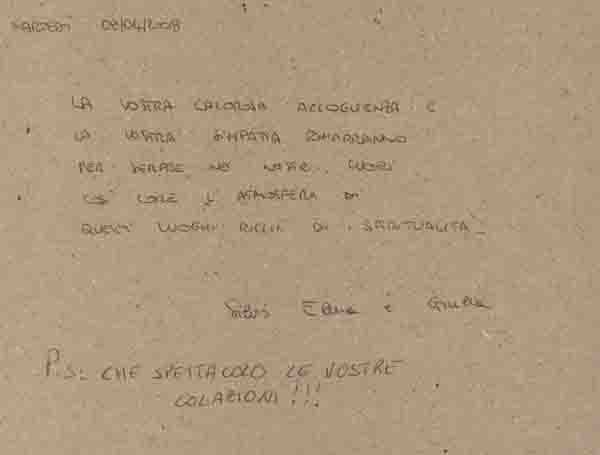 MARTEDÌ 08/04/2008
LA VOSTRA CALOROSA ACCOGLIENZA E
LA VOSTRA SIMPATIA RIMARRANNO
PER SEMPRE NEI NOSTRI CUORI
COSÌ COME L'ATMOSFERA DI
QUESTI LUOGHI RICCHI DI SPIRITUALITÀ
Elena e Giulia
P.S.: CHE SPETTACOLO LE VOSTRE
COLAZIONI!!!